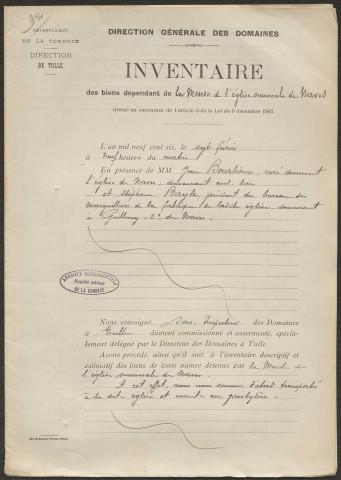 DÉPARTEMENT
DE LA CORRÈZE
DIRECTION
DE TULLE
DIRECTION GÉNÉRALE DES DOMAINES
INVENTAIRE
des biens dépendant de la Mense de l'église succursale de Naves
dressé en exécution de l'article 3 de la Loi du 9 décembre 1905
L'an mil neuf cent six, le sept février
à neuf heures du matin
En présence de MM Jean Bourlioux, curé desservant
l'église de Naves, demeurant aud. lieu
et Stéphane Bayle président du bureau des
marguilliers de la fabrique de ladite église demeurant
à Cne de Naves
ARCHIVES DÉPARTEMENTALES
Propriété publique
DE LA CORRÈZE
Nous soussigné Sous-Inspecteur des Domaines
à Tulle dûment commissionné et assermenté, spécia-
lement délégué par le Directeur des Domaines à Tulle.
Avons procédé, ainsi qu'il suit, à l'inventaire descriptif et
estimatif des biens de toute nature détenus par la Mense de
l'église succursale de Naves
A cet effet, nous nous sommes d'abord transportés
à la dite église et ensuite au presbytère.